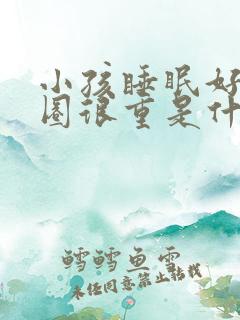 小孩睡眠好
圈很重是什
鳕鳕鱼雪
未经同意禁止转载